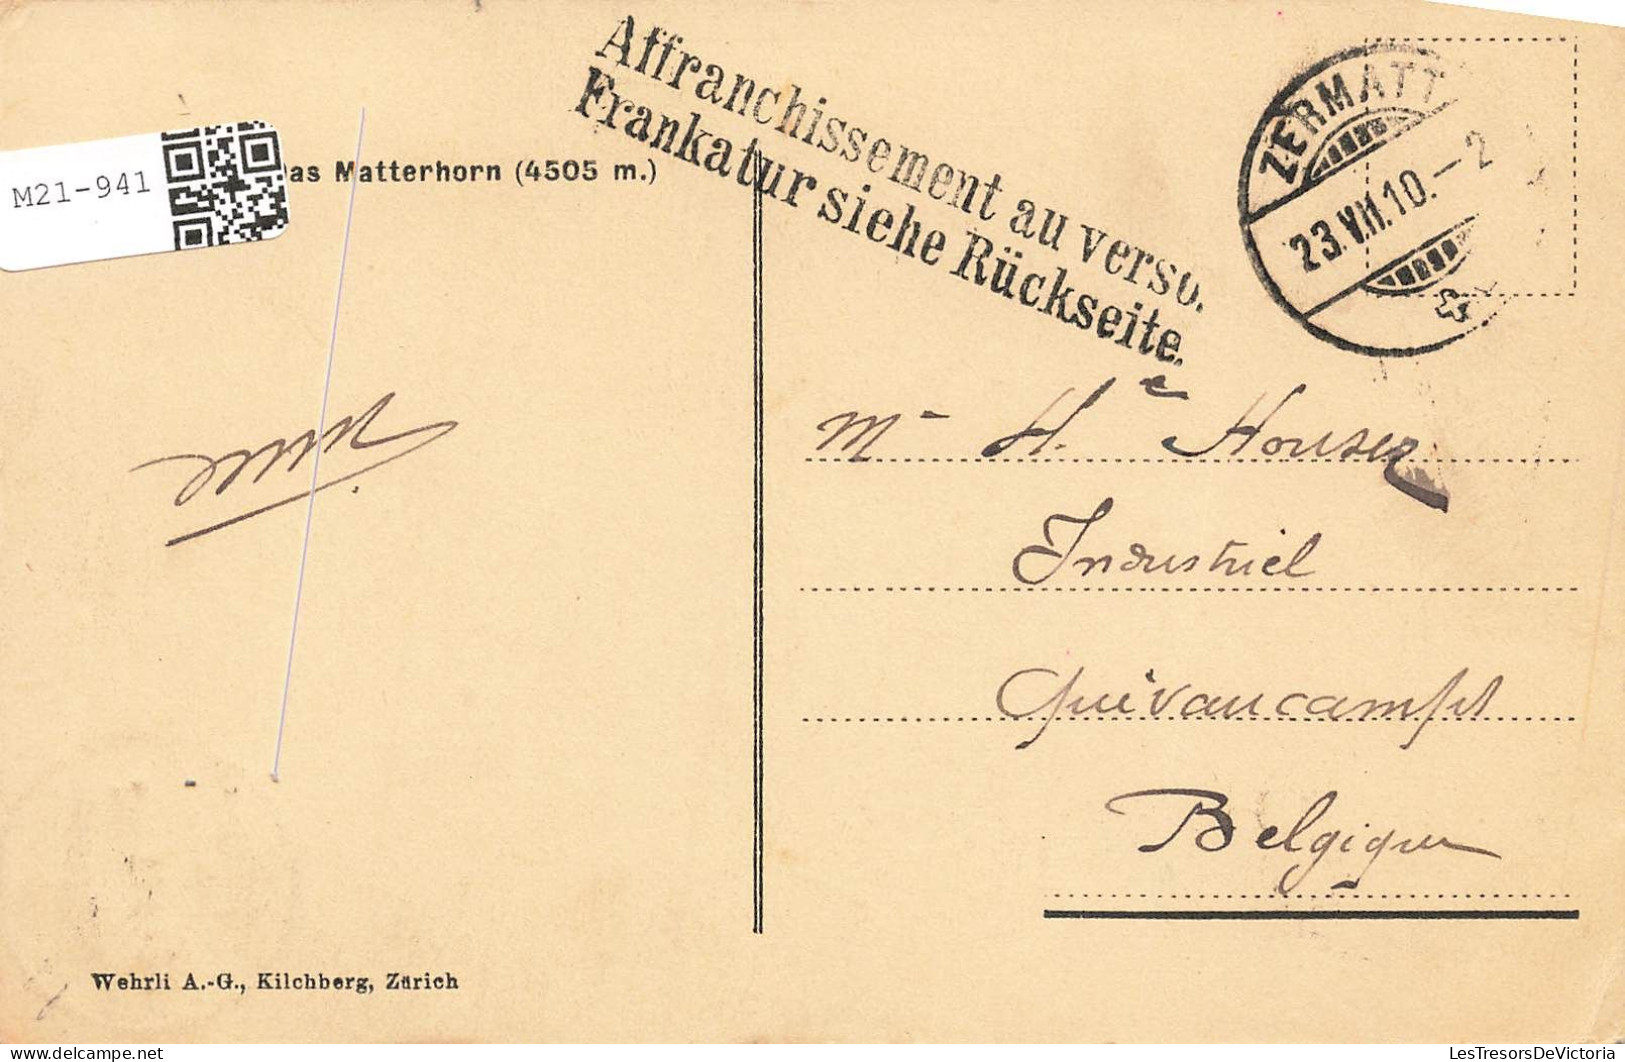 Affranchissement au verso.
Frankatur siehe Rückseite.
ZERMATT
23.VII.10.–2
M21-941
as Matterhorn (4505 m.)
Mr H. Houser
Industriel
Quévaucamps
Belgique
Wehrli A.-G., Kilchberg, Zürich
delcampe.net
LesTresorsDeVictoria